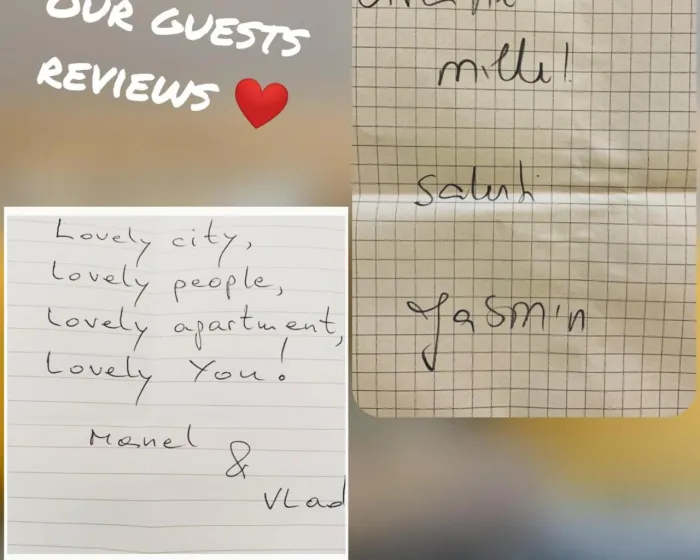 OUR GUESTS
REVIEWS ❤️
Lovely city,
Lovely people,
Lovely apartment,
Lovely You!
Manel
&
VLad
mille!
Saluti
Jasmin